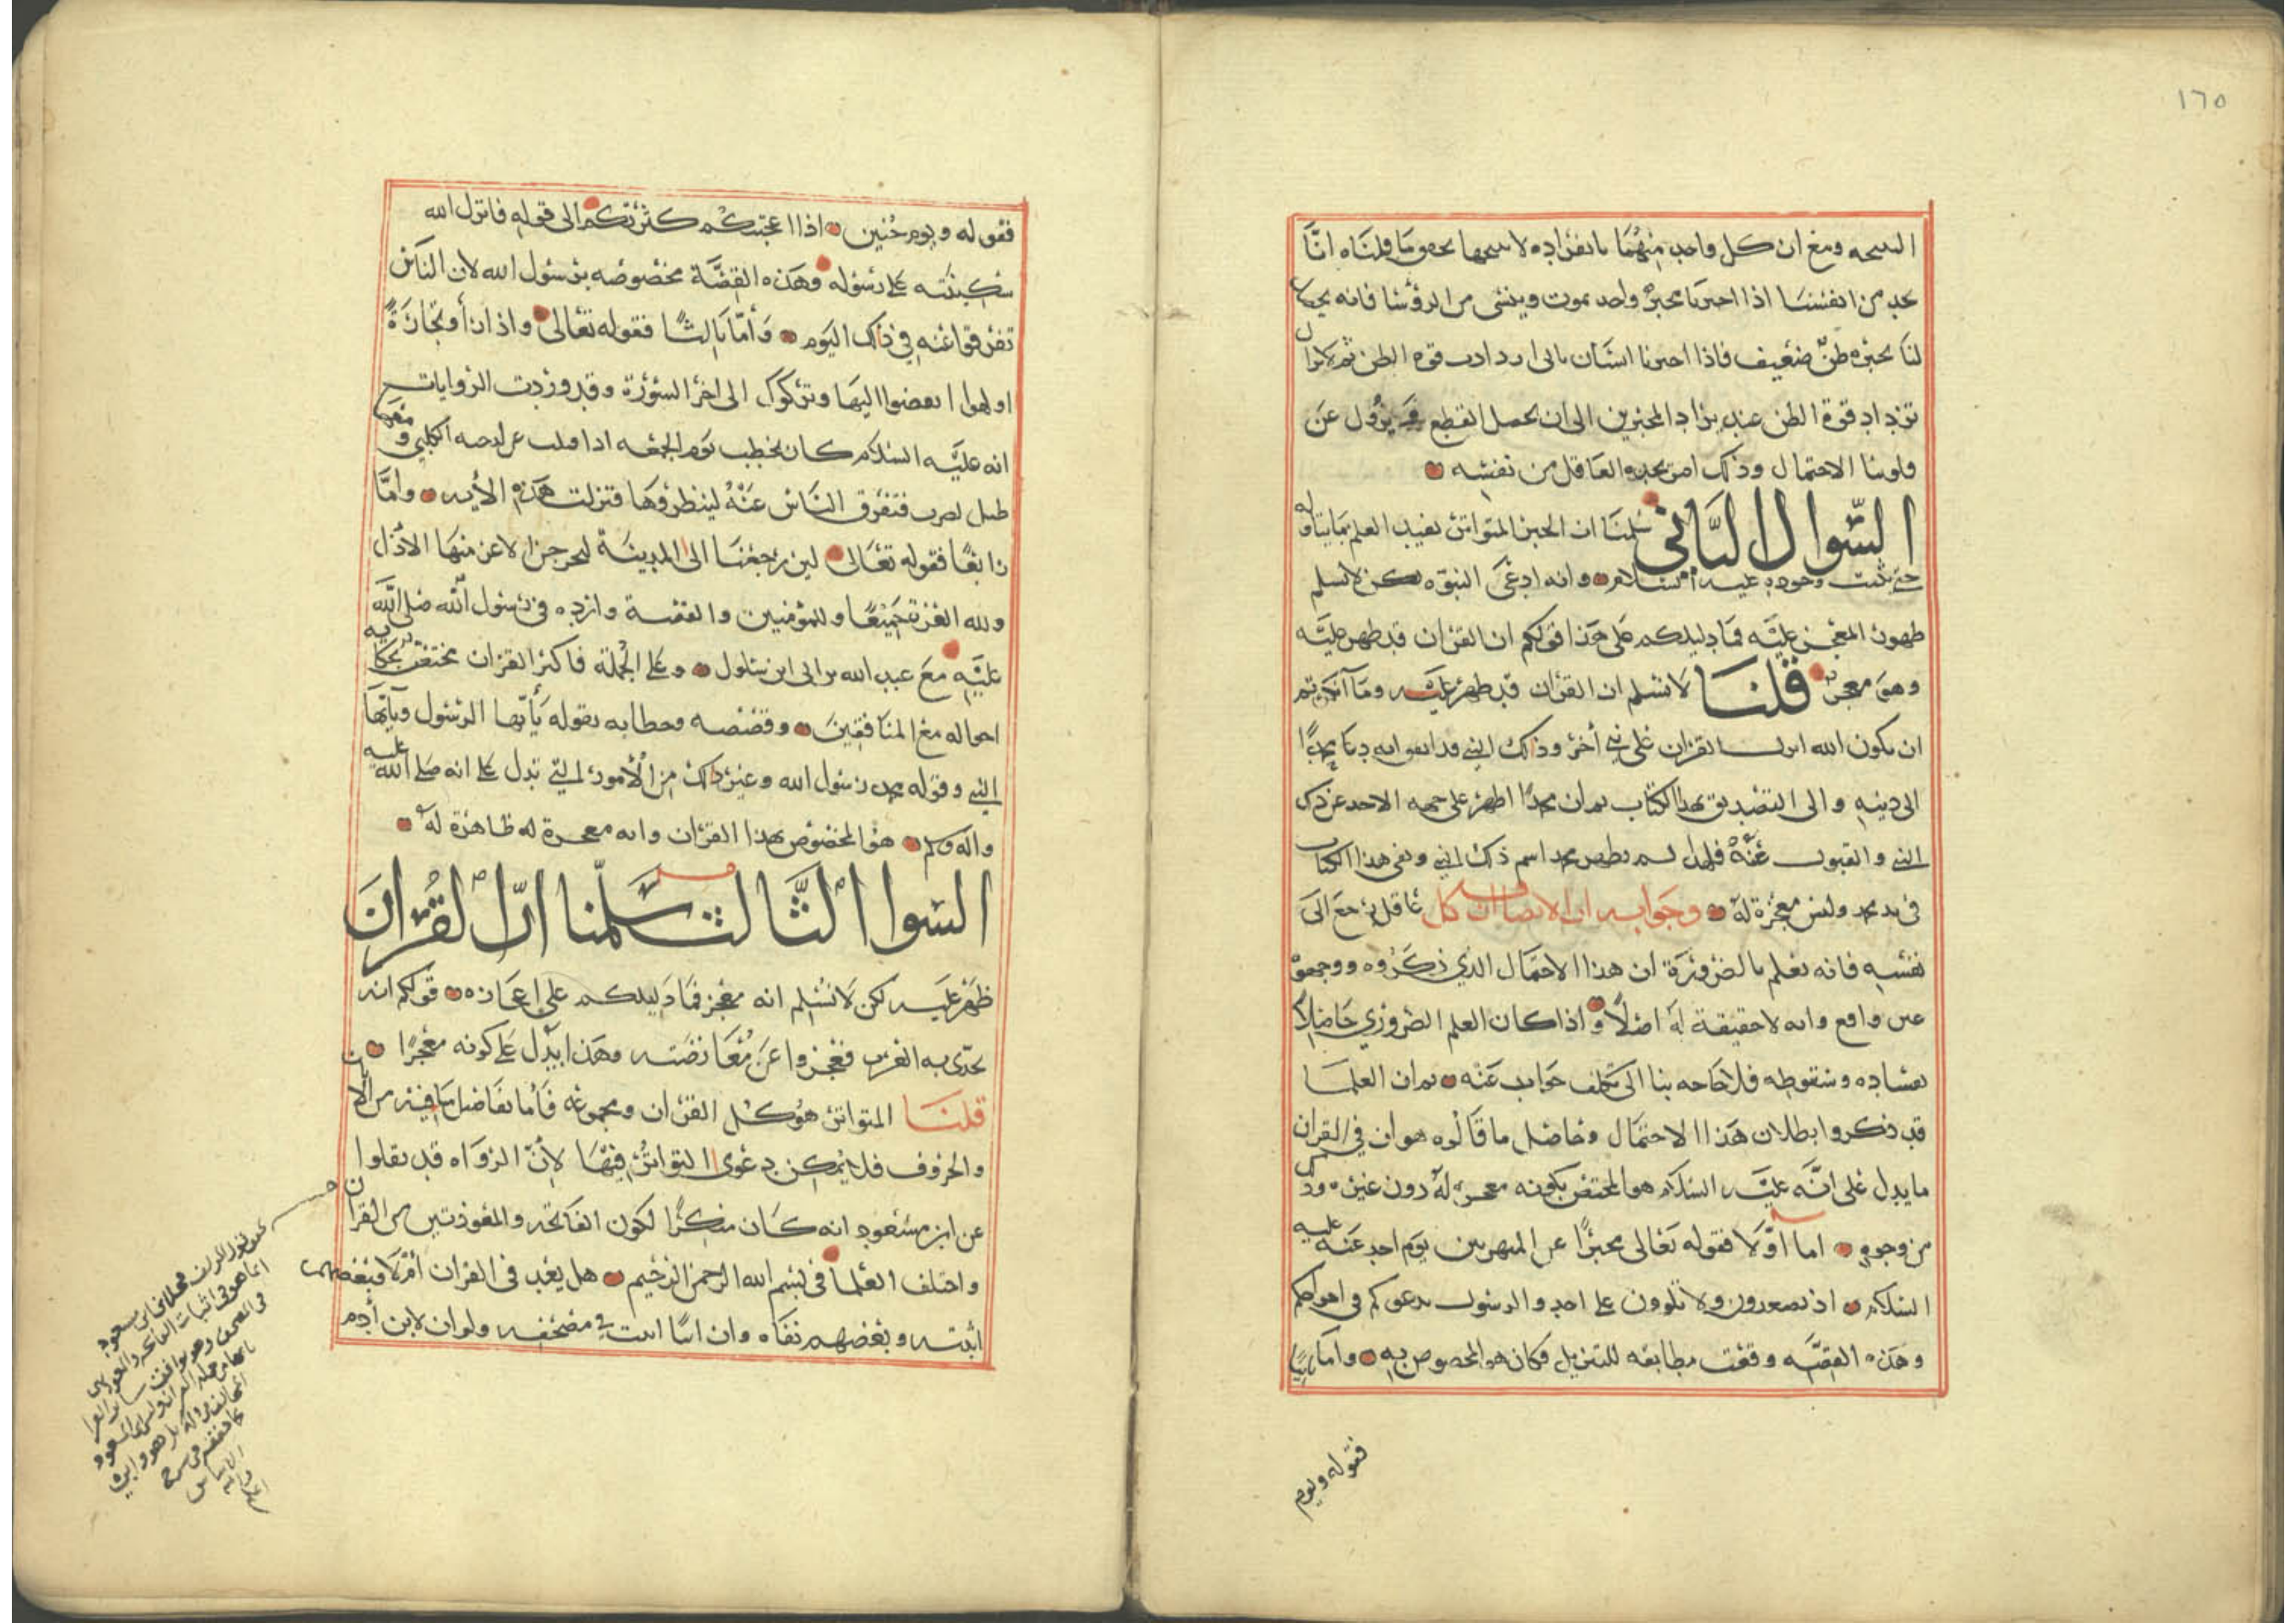 ١٦٥
النتيجه ومع ان كل واحد منهما بانفراده لا ينتجها يحقق ما قلناه انا
نجد من انفسنا اذا اخبرنا مخبر واحد بموت وينشى من الرؤسا فانه يحصل
لنا بخبره ظن ضعيف فاذا اخبرنا انسان ثانى ازدادت قوة الظن ثم لا يزال
تزداد قوة الظن عند تزايد المخبرين الى ان يحصل القطع ويزول عن
قلوبنا الاحتمال وذلك امر يجده العاقل من نفسه
السؤال الثاني سلمنا ان الخبر المتواتر يفيد العلم بما يتناوله
حتى يثبت وجوده عليه السلام وانه ادعى النبوه لكن لا نسلم
ظهور المعجز عليه فما دليلكم على هذا قولكم ان القرآن قد ظهر عليه
وهو معجز قلنا لا نسلم ان القرآن قد ظهر عليه وما انكرتم
ان يكون الله انزل القرآن على نبي آخر وذلك النبي قد دعا محمدا
الى دينه والى التصديق بهذا الكتاب ثم ان محمدا اظهر على الاخذ عن ذلك
النبي والقبول عنه لم يظهر محمد اسم ذلك النبي وبقى هذا الكتاب
في يد محمد وليس معجزة له وجوابه ان الانصاف ان كل عاقل يرجع الى
نفسه فانه يعلم بالضرورة ان هذا الاحتمال الذي ذكروه
غير واقع وانه لا حقيقة له اصلا واذا كان العلم الضروري حاصلا
بفساده وسقوطه فلا حاجه بنا الى تكلف جواب عنه ثم ان العلما
قد ذكروا بطلان هذا الاحتمال وحاصل ما قالوه هو ان في القران
ما يدل على انه عليه السلام هو المختص بكونه معجزة له دون غيره وذلك
من وجوه اما اولا فقوله تعالى مخبرا عن المنهزمين يوم احد عنه عليه
السلام اذ تصعدون ولا تلوون على احد والرسول يدعوكم في اخراكم
وهذه القصه وقعت مطابقه للتنزيل فكان هو المخصوص به واما ثانيا
فقوله ويوم
فقوله ويوم حنين اذ اعجبتكم كثرتكم الى قوله فانزل الله
سكينته على رسوله وهذه القصة مخصوصه برسول الله لان الناس
تفرقوا عنه في ذلك اليوم وأما ثالثا فقوله تعالى واذا رأوا تجارة
او لهوا انفضوا اليها وتركوك الى اخر السورة وقد وردت الروايات
انه عليه السلام كان يخطب يوم الجمعه اذا قبلت عير لدحيه الكلبي ومعها
طبل يضرب فتفرق الناس عنه لينظروها فنزلت هذه الأيه واما
رابعا فقوله تعالى لئن رجعنا الى المدينة ليخرجن الاعز منها الاذل
ولله العزة جميعا وللمؤمنين والقصة وارده في رسول الله صلى الله
عليه مع عبد الله بن ابى ابن سلول وعلى الجملة فاكثر القران مختص بحكاية
احواله مع المنافقين وقصصه وخطابه بقوله يأيها الرسول ويأيها
النبي وقوله محمد رسول الله وغير ذلك من الأمور التي تدل على انه صلى الله عليه
واله وسلم هو المخصوص بهذا القرآن وانه معجزة له ظاهرة له
السؤال الثالث سلمنا ان القران
ظهر عليه لكن لا نسلم انه معجز فما دليلكم على اعجازه قولكم انه
تحدى به العرب فعجزوا عن معارضته وهذا يدل على كونه معجزا
قلنا المتواتر هو كل القرآن ومجموعه فأما تفاصيل ما فيه من الايات
والحروف فلا يمكن دعوى التواتر فيها لأن الرواه قد نقلوا
عن ابن مسعود انه كان منكرا لكون الفاتحه والمعوذتين من القران
واختلف العلما في بسم الله الرحمن الرحيم هل يعد في القران أم لا فبعضهم
اثبته وبعضهم نفاه وان ابيا اثبت في مصحفه ولو ان لابن أدم